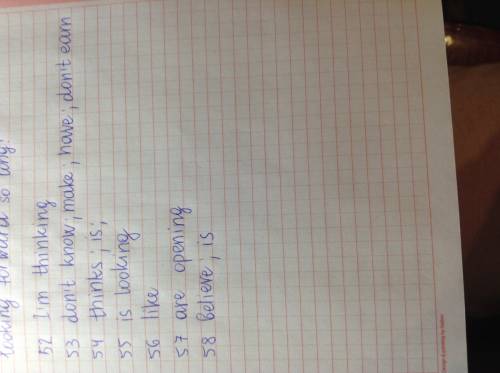 looking forward so long!
52 I'm thinking
53 don't know; make; have; don't earn
54 thinks; is;
55 is looking
56 like
57 are opening
58 believe; is